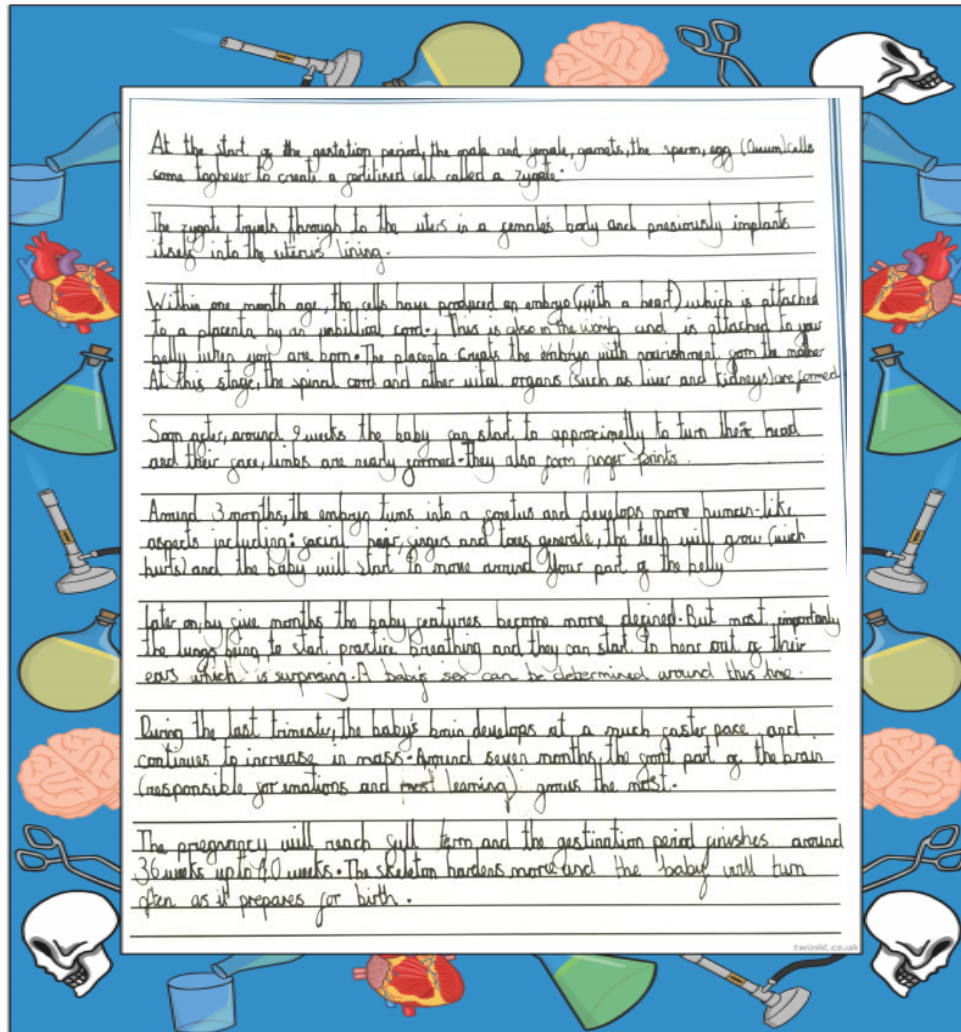 At the start of the gestation period, the male and female, gamets, the sperm, egg (Ovum) cells
come toghever to create a fertilised cell called a zygote.
The zygote travels through to the uters in a female's body and presiously implants
itself into the uterus' lining.
Within one month age, the cells have produced an embryo (with a heart) which is attached
to a placenta by an umbillical cord. This is also in the womb and is attached to your
belly when you are born. The placenta the embryo with nourishment from the mother
At this stage, the spinal cord and other vital organs (such as liver and kidneys) are formed
Soon after, around 9 weeks the baby can start, to approximatly to turn their head
and their face, limbs are nearly formed. They also form finger prints.
Around 3 months, the embryo turns into a foetus and develops more human-like
aspects including: facial hair, fingers and toes generate, the teeth will grow (wich
hurts) and the baby will start to move around your part of the belly
later on, by five months the baby features become more defined. But most importanly
the lungs being to start practice breathing and they can start to hear out of their
ears which is surprising. A baby's sex can be determined around this time.
During the last trimester, the baby's brain develops at a much faster pace and
continues to increase in mass. Around seven months, the front part of the brain
(responsible for emotions and most learning) grows the most.
The pregnancy will reach full term and the gestination period finishes around
36 weeks up to 40 weeks. The skeleton hardens more and the baby will turn
often as it prepares for birth.
twinkl.co.uk